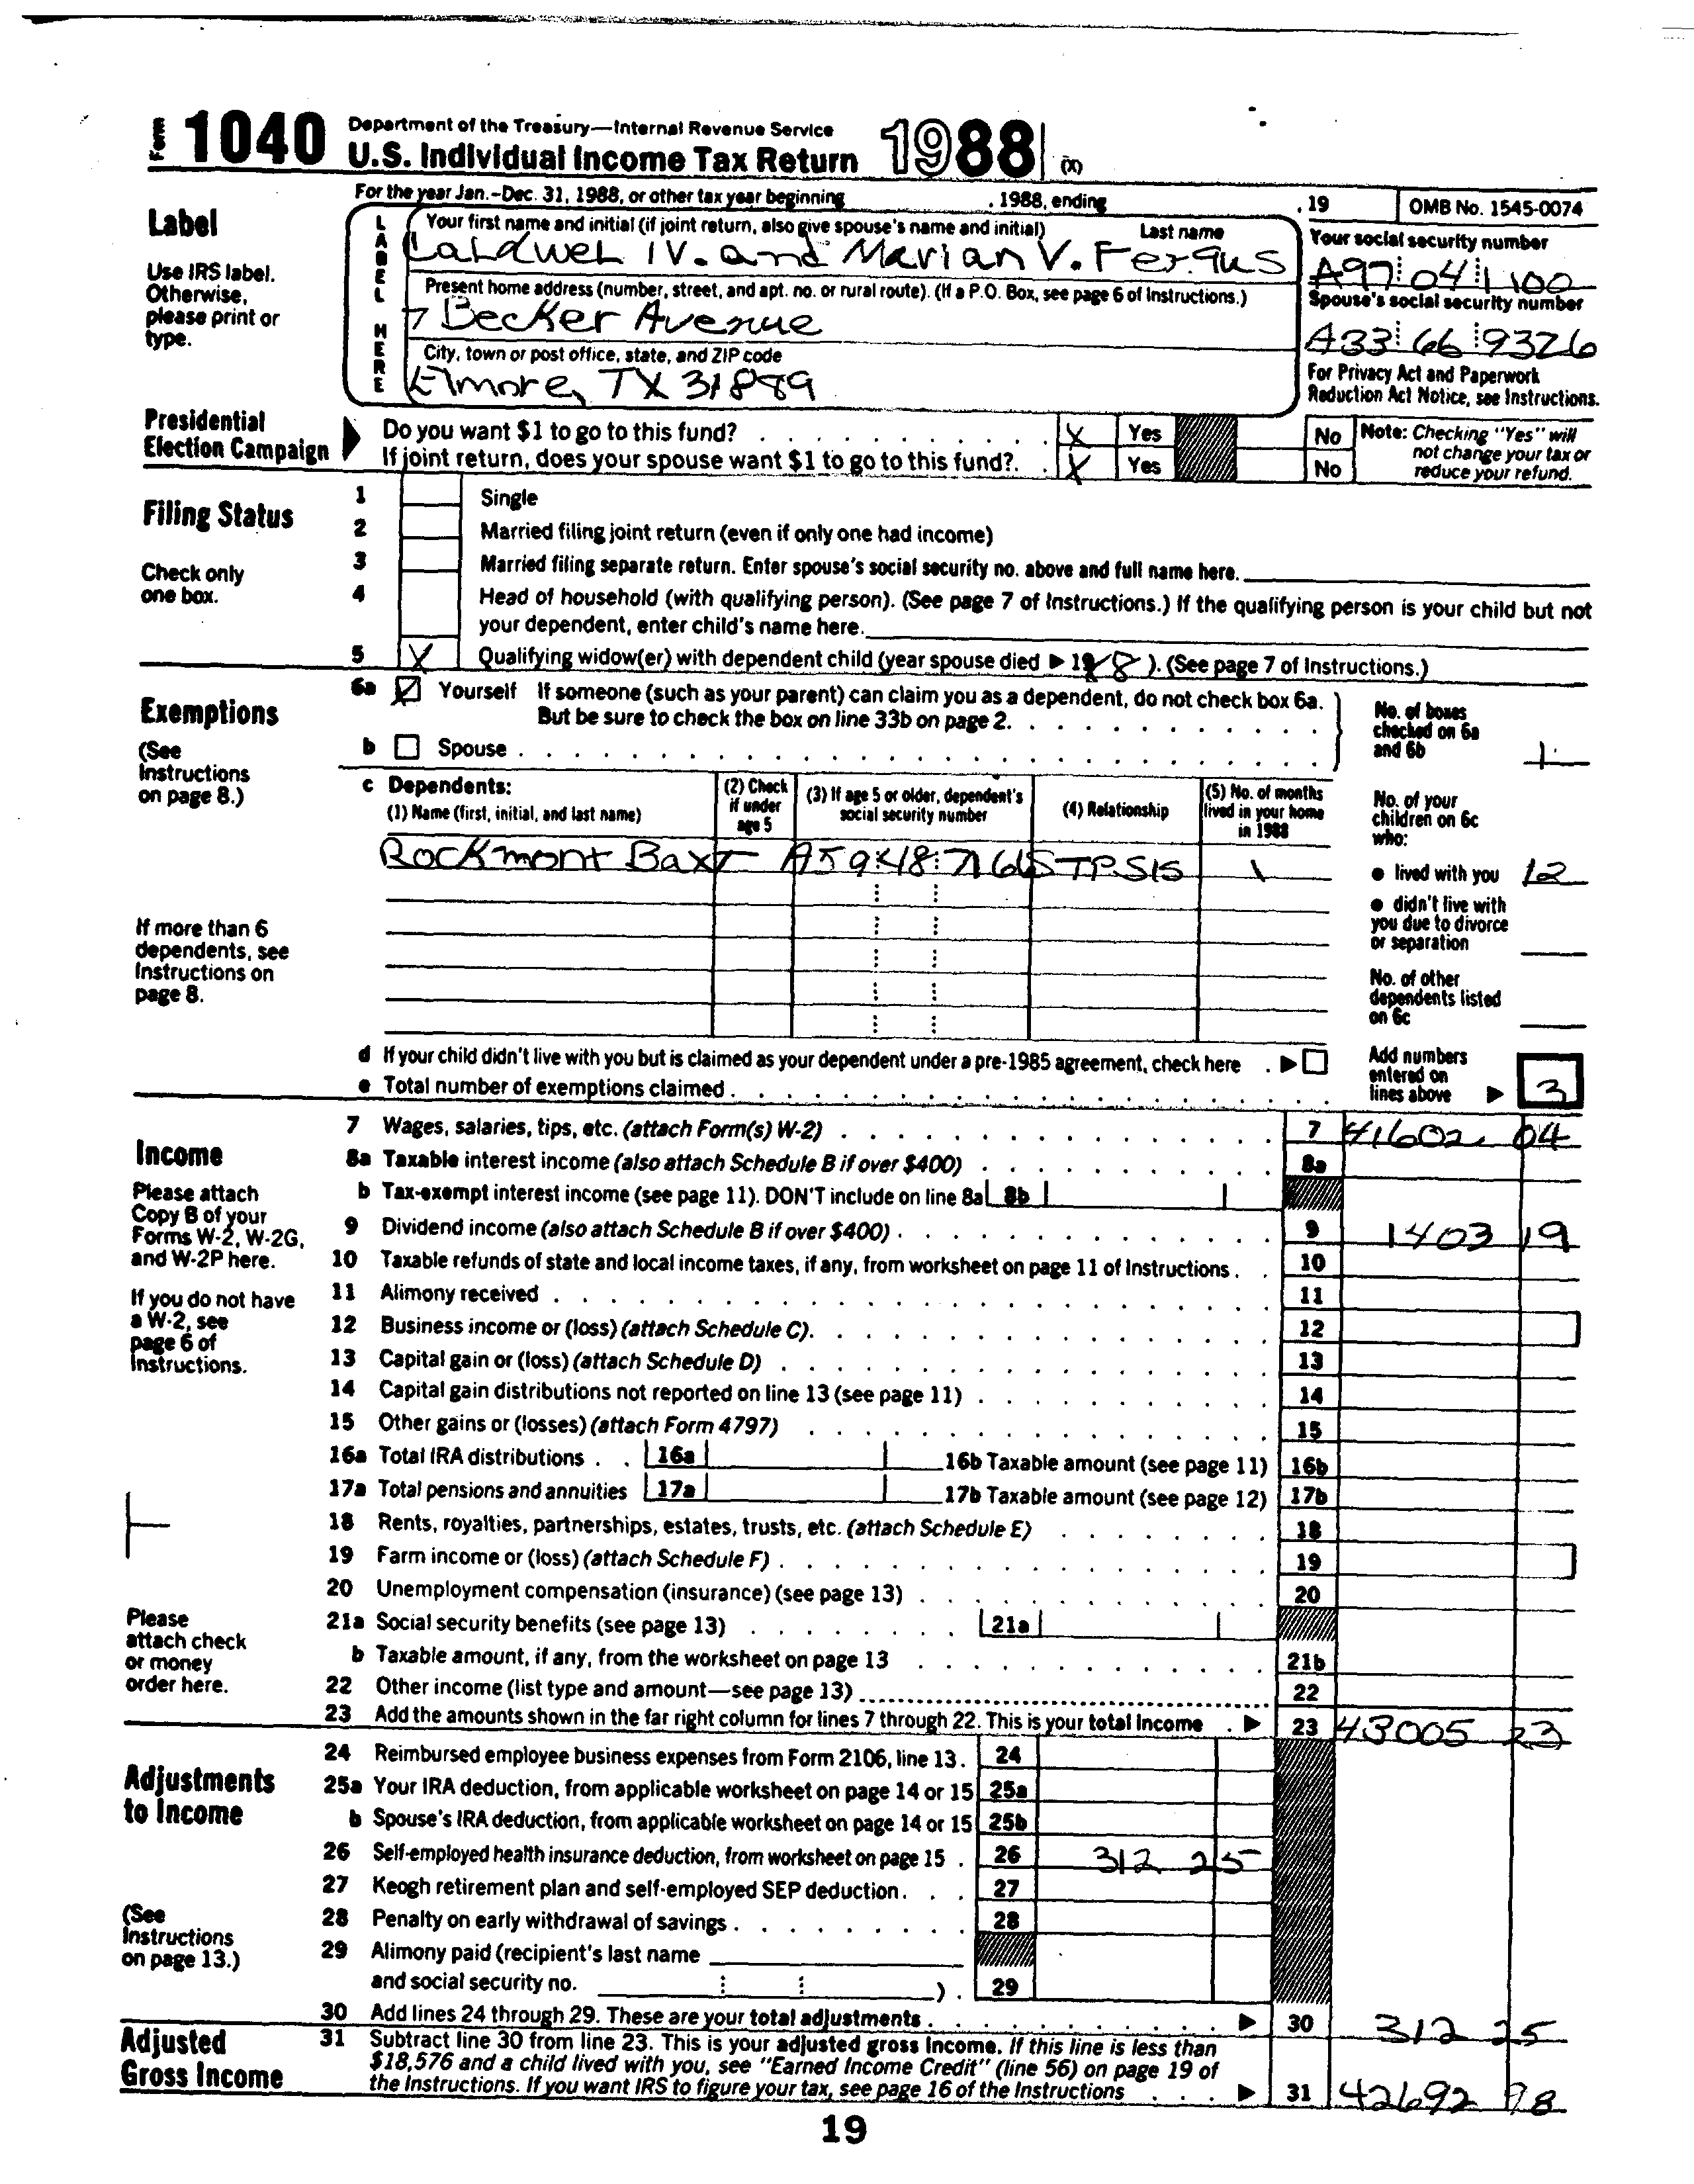 Form 1040 Department of the Treasury—Internal Revenue Service
U.S. Individual Income Tax Return 1988 (X)
For the year Jan.-Dec. 31, 1988, or other tax year beginning , 1988, ending , 19 OMB No. 1545-0074
Label
Use IRS label.
Otherwise,
please print or
type.
LABEL HERE
Your first name and initial (if joint return, also give spouse's name and initial) Last name
IV. and Marian V. Fergus
Your social security number
A97 04 1100
Present home address (number, street, and apt. no. or rural route). (If a P.O. Box, see page 6 of Instructions.)
7 Becker Avenue
Spouse's social security number
A33 66 9326
City, town or post office, state, and ZIP code
Elmore, TX 31889
For Privacy Act and Paperwork
Reduction Act Notice, see Instructions.
Presidential
Election Campaign
Do you want $1 to go to this fund? X Yes No
If joint return, does your spouse want $1 to go to this fund?. X Yes No
Note: Checking "Yes" will
not change your tax or
reduce your refund.
Filing Status
Check only
one box.
1 Single
2 Married filing joint return (even if only one had income)
3 Married filing separate return. Enter spouse's social security no. above and full name here.
4 Head of household (with qualifying person). (See page 7 of Instructions.) If the qualifying person is your child but not
your dependent, enter child's name here.
5 X Qualifying widow(er) with dependent child (year spouse died ▶ 19 8 ). (See page 7 of Instructions.)
Exemptions
(See
Instructions
on page 8.)
If more than 6
dependents, see
Instructions on
page 8.
6a Yourself If someone (such as your parent) can claim you as a dependent, do not check box 6a.
But be sure to check the box on line 33b on page 2.
b Spouse
No. of boxes
checked on 6a
and 6b 1
c Dependents:
(1) Name (first, initial, and last name)
(2) Check
if under
age 5
(3) If age 5 or older, dependent's
social security number
(4) Relationship
(5) No. of months
lived in your home
in 1988
Rockmont Baxt A59 48 7166 STPSIS 1
No. of your
children on 6c
who:
● lived with you 12
● didn't live with
you due to divorce
or separation
No. of other
dependents listed
on 6c
d If your child didn't live with you but is claimed as your dependent under a pre-1985 agreement, check here ▶
e Total number of exemptions claimed
Add numbers
entered on
lines above ▶ 3
Income
Please attach
Copy B of your
Forms W-2, W-2G,
and W-2P here.
If you do not have
a W-2, see
page 6 of
Instructions.
Please
attach check
or money
order here.
7 Wages, salaries, tips, etc. (attach Form(s) W-2) 7 41602 04
8a Taxable interest income (also attach Schedule B if over $400) 8a
b Tax-exempt interest income (see page 11). DON'T include on line 8a 8b
9 Dividend income (also attach Schedule B if over $400) 9 1403 19
10 Taxable refunds of state and local income taxes, if any, from worksheet on page 11 of Instructions 10
11 Alimony received 11
12 Business income or (loss) (attach Schedule C). 12
13 Capital gain or (loss) (attach Schedule D) 13
14 Capital gain distributions not reported on line 13 (see page 11) 14
15 Other gains or (losses) (attach Form 4797) 15
16a Total IRA distributions 16a 16b Taxable amount (see page 11) 16b
17a Total pensions and annuities 17a 17b Taxable amount (see page 12) 17b
18 Rents, royalties, partnerships, estates, trusts, etc. (attach Schedule E) 18
19 Farm income or (loss) (attach Schedule F) 19
20 Unemployment compensation (insurance) (see page 13) 20
21a Social security benefits (see page 13) 21a
b Taxable amount, if any, from the worksheet on page 13 21b
22 Other income (list type and amount—see page 13) 22
23 Add the amounts shown in the far right column for lines 7 through 22. This is your total income ▶ 23 43005 23
Adjustments
to Income
(See
Instructions
on page 13.)
24 Reimbursed employee business expenses from Form 2106, line 13. 24
25a Your IRA deduction, from applicable worksheet on page 14 or 15 25a
b Spouse's IRA deduction, from applicable worksheet on page 14 or 15 25b
26 Self-employed health insurance deduction, from worksheet on page 15 26 312 25
27 Keogh retirement plan and self-employed SEP deduction 27
28 Penalty on early withdrawal of savings 28
29 Alimony paid (recipient's last name
and social security no. ) 29
30 Add lines 24 through 29. These are your total adjustments ▶ 30 312 25
Adjusted
Gross Income
31 Subtract line 30 from line 23. This is your adjusted gross income. If this line is less than
$18,576 and a child lived with you, see "Earned Income Credit" (line 56) on page 19 of
the Instructions. If you want IRS to figure your tax, see page 16 of the Instructions ▶ 31 42692 98
19